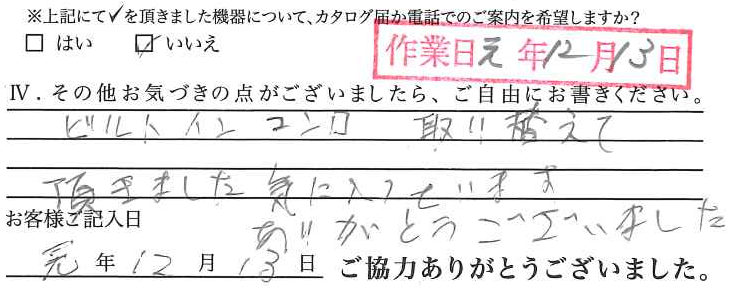 ※上記にて✓を頂きました機器について、カタログ届か電話でのご案内を希望しますか?
□ はい ☑ いいえ
作業日元年12月13日
Ⅳ．その他お気づきの点がございましたら、ご自由にお書きください。
ビルトインコンロ 取り替えて
頂きました気に入っています
ありがとうございました
お客様ご記入日
元年12月13日 ご協力ありがとうございました。